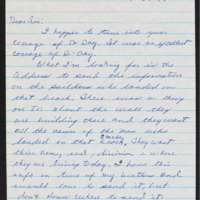 Dear Sir:
I happen to turn into your
coverage of D-Day. It was an excellent
coverage of D-Day.
What I'm looking for is the
address to send the information
on the soldiers who landed on
that beach. There was a
on talk about the wall they
are building there and they want
all the names of the men who
landed on that Omaha beach. They want
their name, unit, division & where
they are living today. I have this
info on two of my brothers and
would love to send it, but
don't know where to send it.